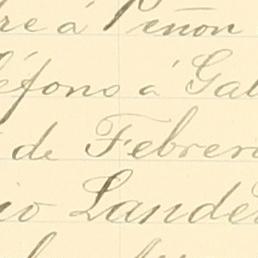 re á Peñon
éfono á Gal
de Febrero
io Lander